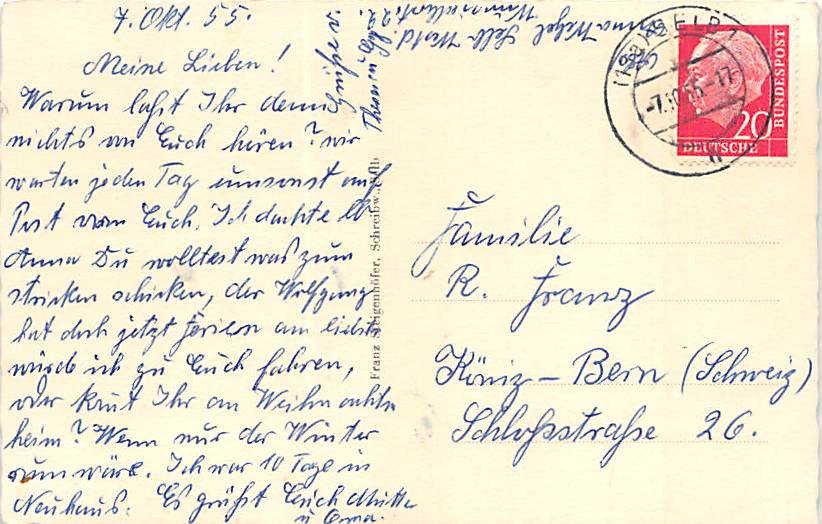 7. Okt. 55.
Meine Lieben!
Warum laßt Ihr denn
nichts von Euch hören? wir
warten jeden Tag umsonst auf
Post von Euch. Ich dachte lb
Anna Du wolltest was zum
stricken schicken, der Wolfgang
hat doch jetzt Ferien am liebsten
würde ich zu Euch fahren,
oder kommt Ihr an Weihnachten
heim? Wenn nur der Winter
rum wäre. Ich war 10 Tage in
Neuhaus. Es grüßt Euch Mutter
u Oma.
Anna Wetzel Selb
Franz Schligenhöfer, Schreibw., Selb
(13a) SELB 1
-7.10.55-17
20
DEUTSCHE
BUNDESPOST
Familie
R. Franz
Köniz - Bern (Schweiz)
Schloßstraße 26.